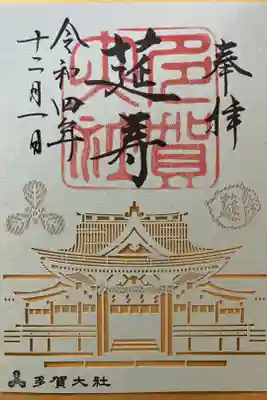 奉拝
多賀
大社
莚寿
令和四年
十二月一日
多賀大社